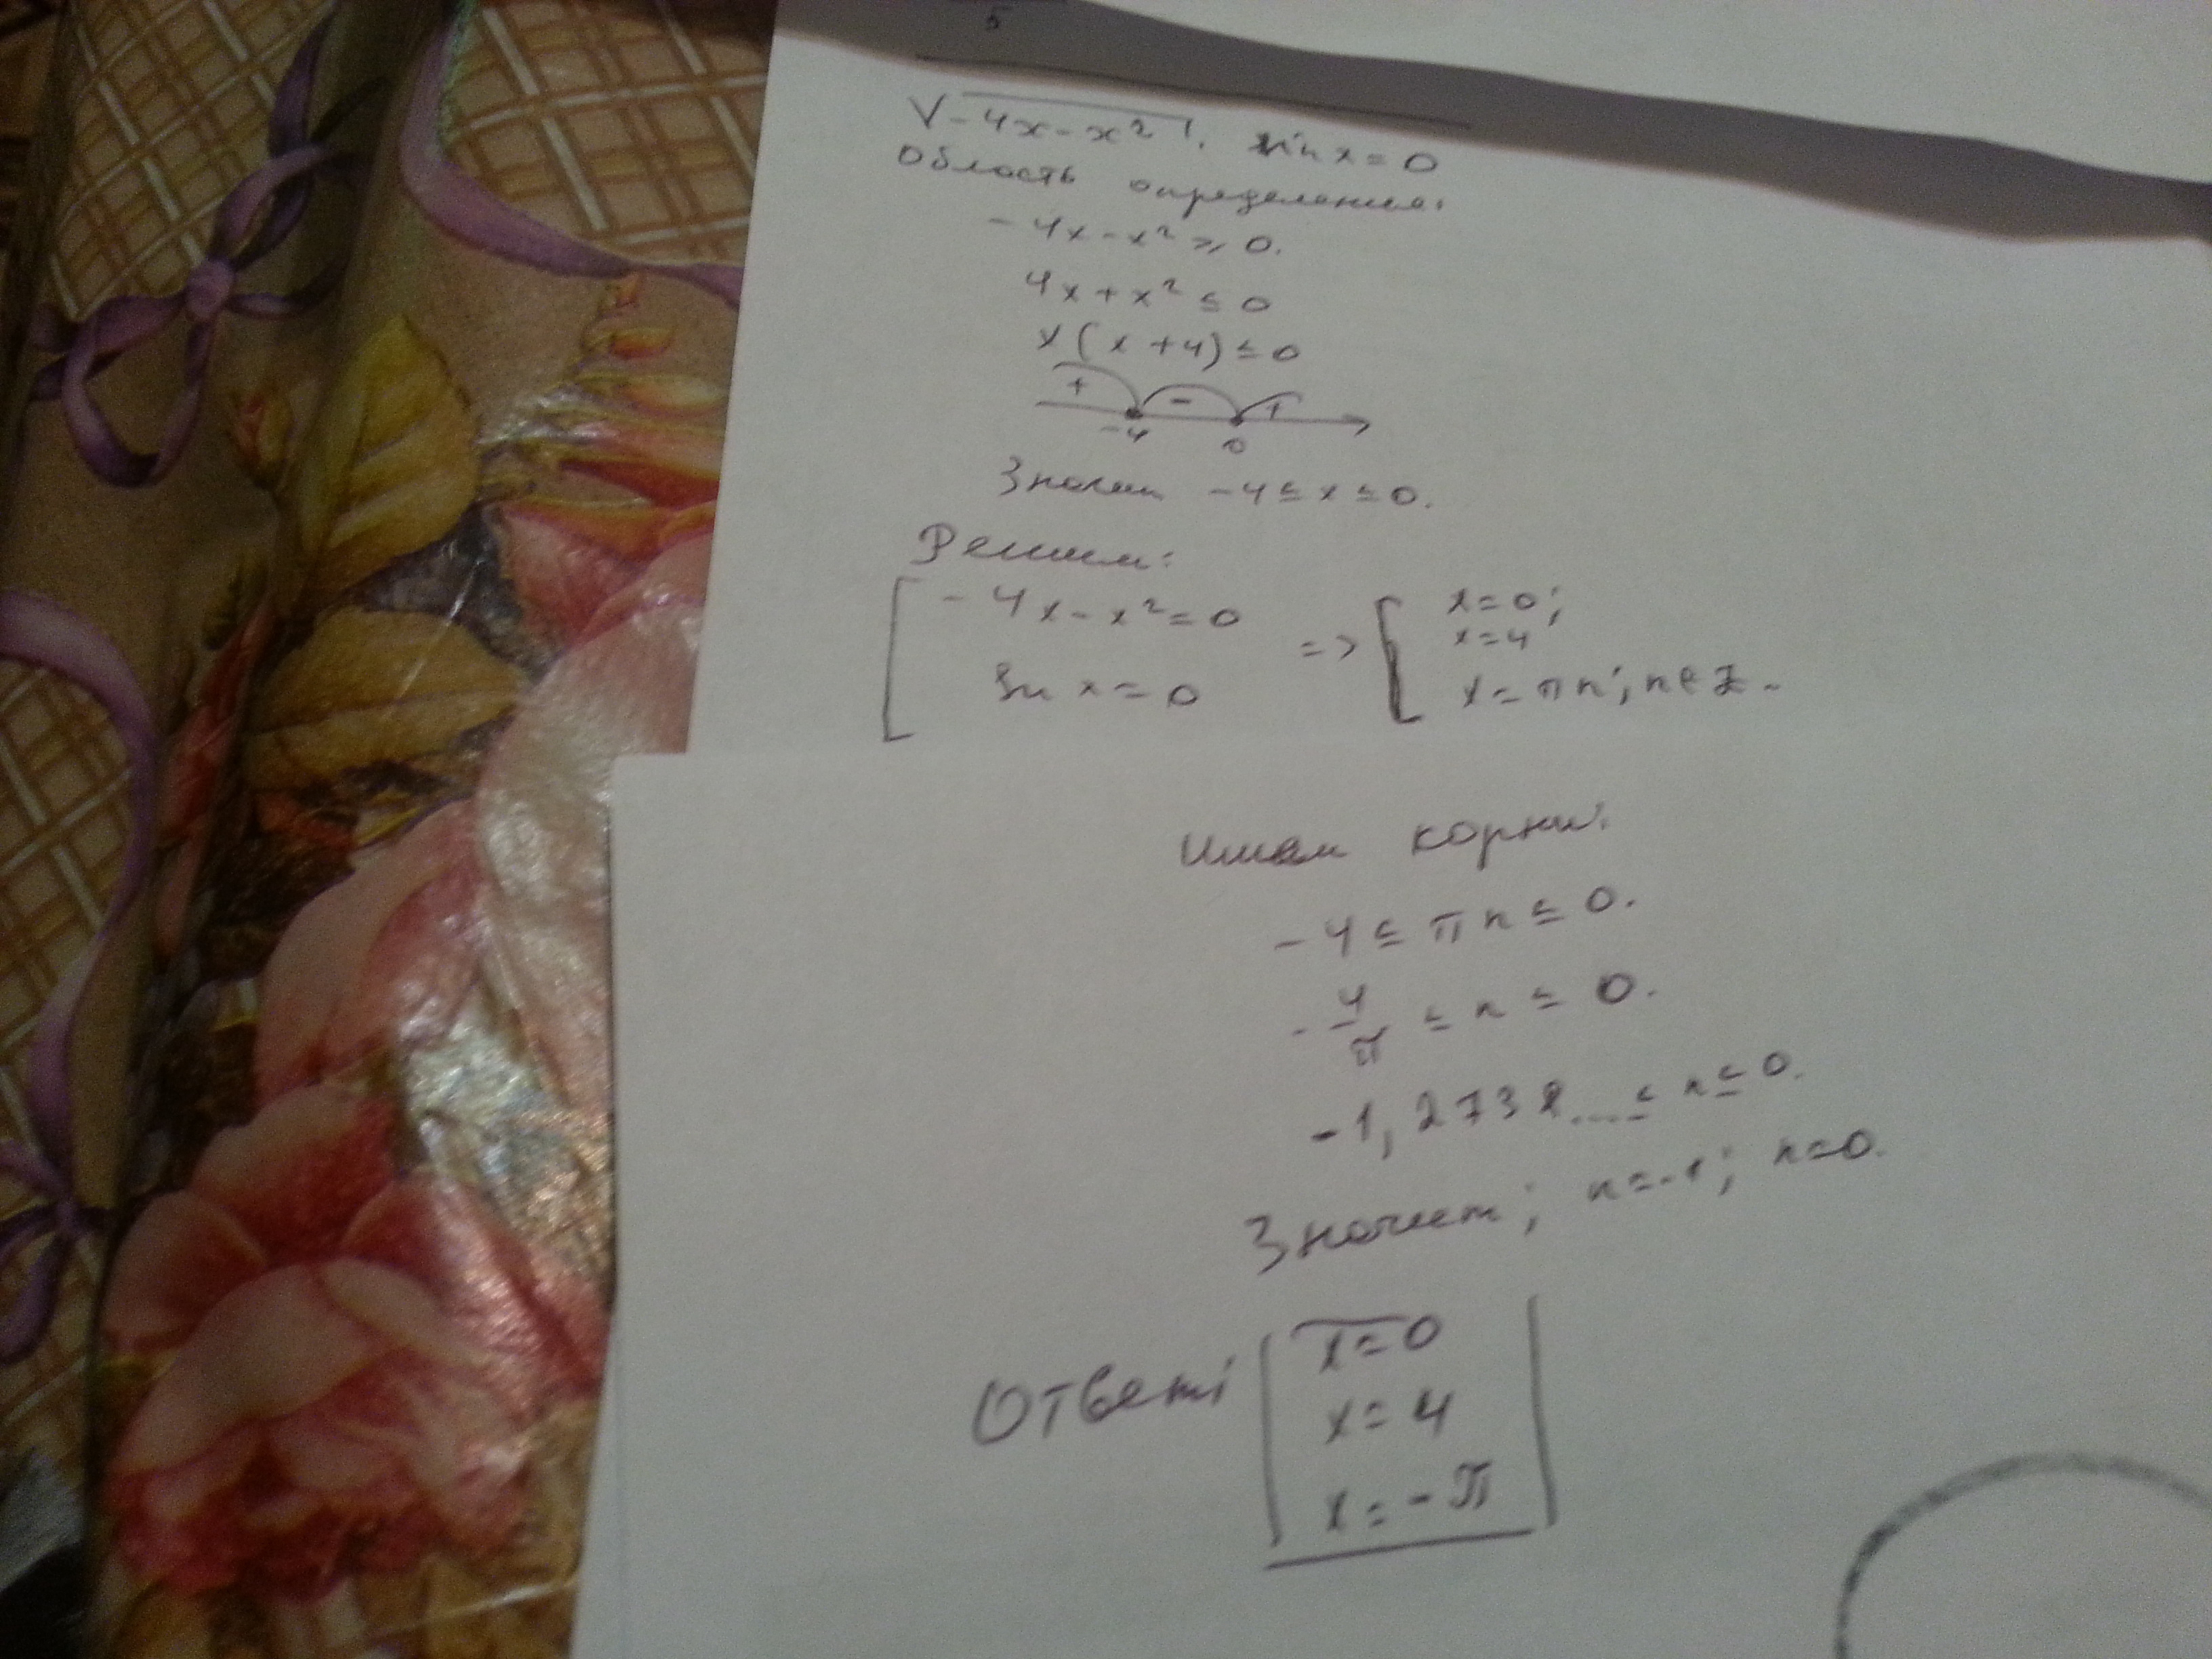 5
√-4x-x². sin x=0
Область определения:
-4x-x²≥0.
4x+x²≤0
x(x+4)≤0
+ - +
-4 0
Значит -4≤x≤0.
Решим:
[ -4x-x²=0 => [ x=0;
x=4
sin x=0 x=πn; n∈Z.
Имеем корни:
-4≤πn≤0.
-4/π ≤n≤0.
-1,2738...≤n≤0.
Значит; n=-1; n=0.
Ответ: x=0
x=4
x=-π